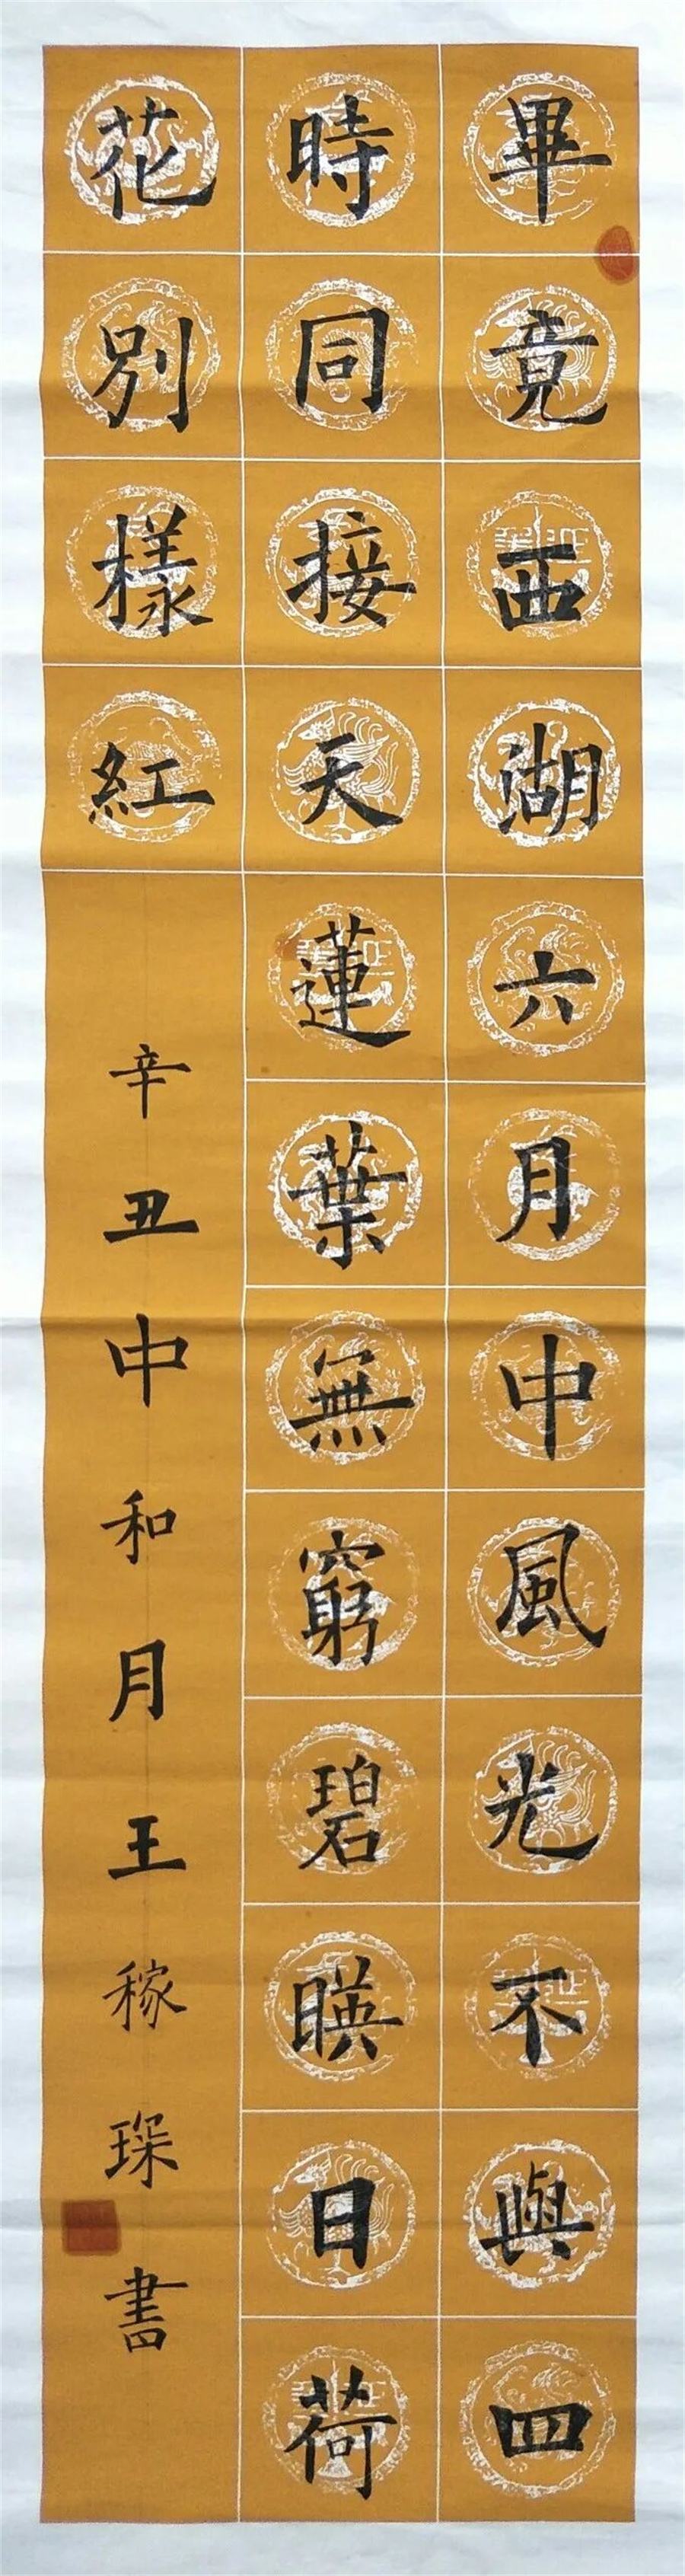 畢竟西湖六月中風光不與四
時同接天蓮葉無窮碧暎日荷
花別樣紅
辛丑中和月王稼琛書